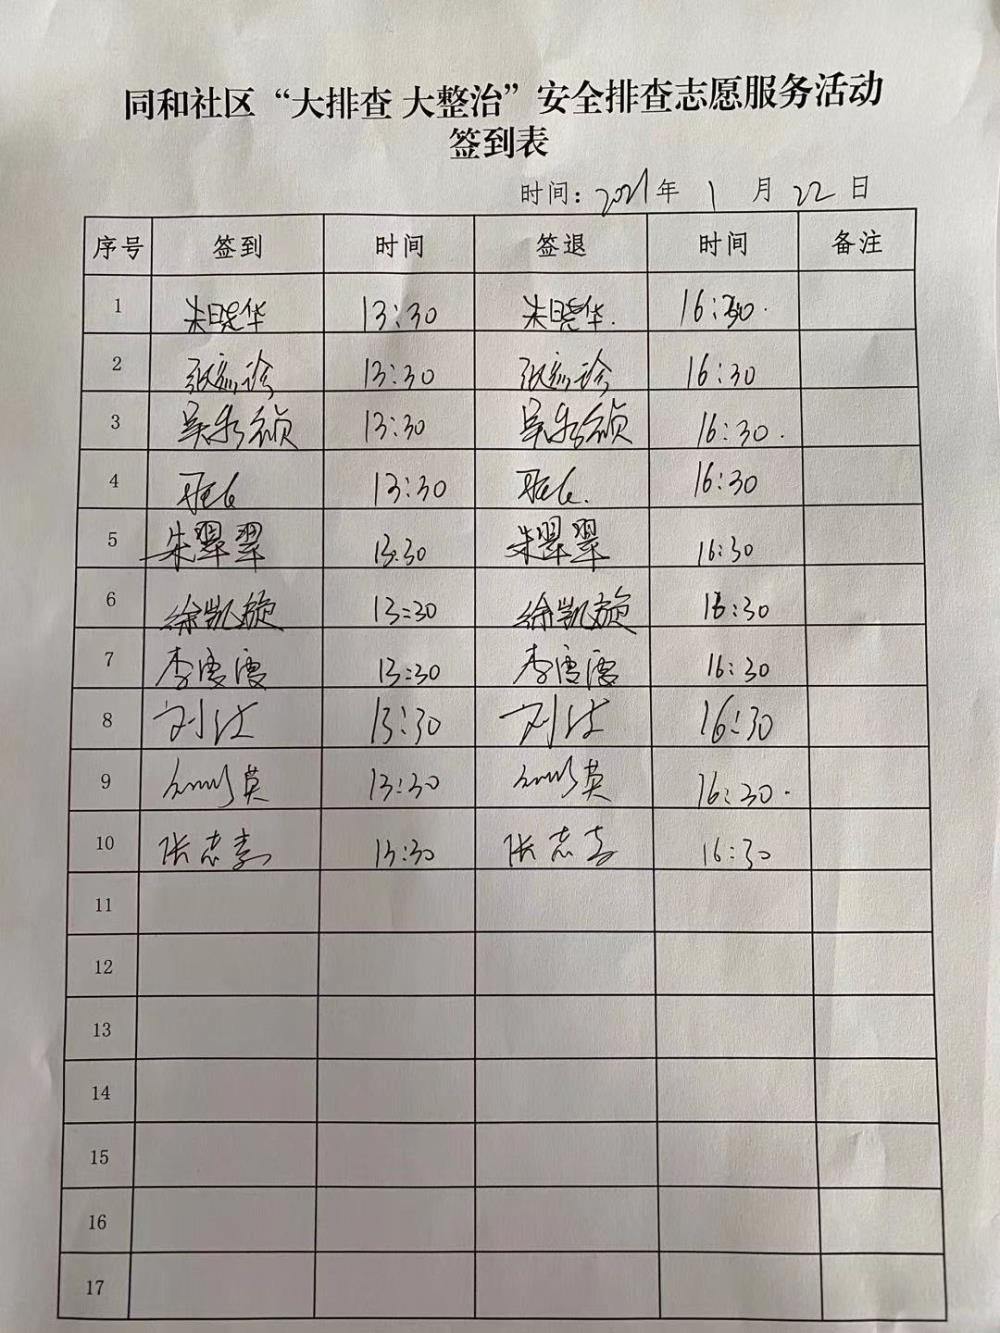 同和社区“大排查 大整治”安全排查志愿服务活动
签到表
时间：2021年 1 月 22 日
序号 签到 时间 签退 时间 备注
1 朱晓华 13:30 朱晓华. 16:30.
2 13:30 16:30
3 13:30 16:30.
4 13:30 16:30
5 朱翠翠 13:30 朱翠翠 16:30
6 徐凯旋 13:30 徐凯旋 16:30
7 李霞霞 13:30 李霞霞 16:30
8 13:30 16:30
9 英 13:30 英 16:30.
10 张志 13:30 张志 16:30
11
12
13
14
15
16
17